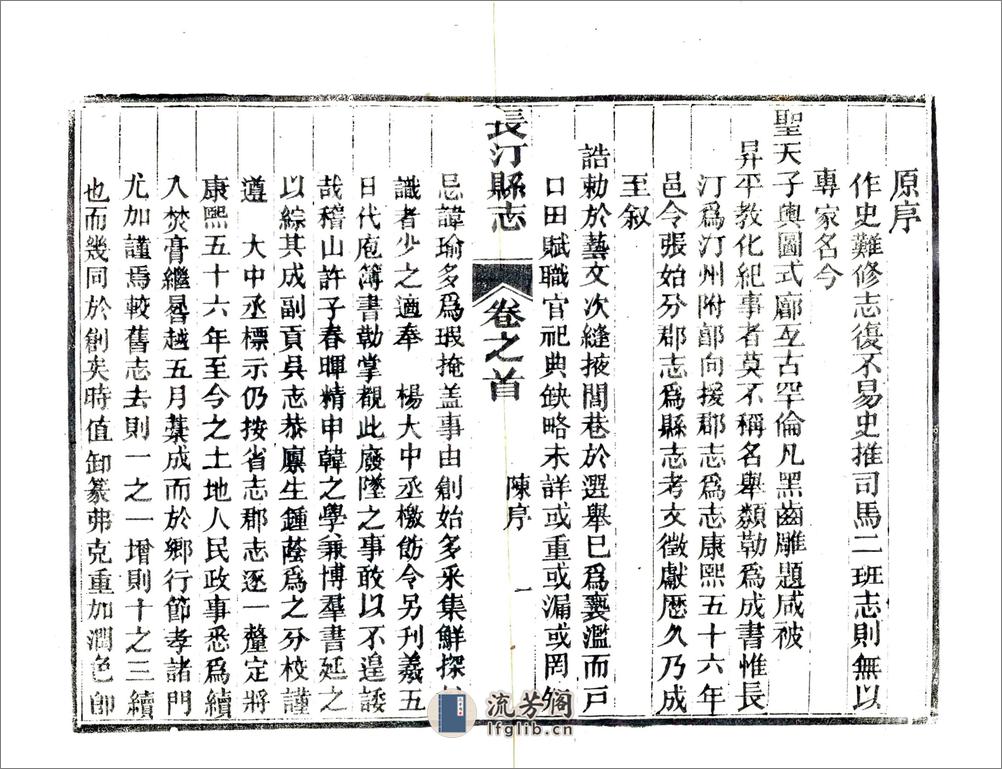 原序
作史難修志復不易史推司馬二班志則無以
專家名今
聖天子輿圖式廓亙古罕倫凡黑齒雕題咸被
昇平教化紀事者莫不稱名舉類勒為成書惟長
汀為汀州附郭向援郡志為志康熙五十六年
邑令張始分郡志為縣志考文徵獻歷久乃成
至叙
誥勅於藝文次縫掖閭巷於選舉已為褻濫而戶
口田賦職官祀典缺略未詳或重或漏或罔
長汀縣志
卷之首
陳序
一
忌諱瑜多為瑕掩盖事由創始多采集鮮探
識者少之適奉 楊大中丞檄飭令另刊義五
日代庖簿書勒掌覩此廢墜之事敢以不遑諉
哉稽山許子春暉精申韓之學兼博羣書延之
以綜其成副貢吳志恭廪生鍾蔭為之分校謹
遵 大中丞標示仍按省志郡志逐一釐定將
康熙五十六年至今之土地人民政事悉為續
入焚膏繼晷越五月藁成而於鄉行節孝諸門
尤加謹焉較舊志去則一之一增則十之三續
也而幾同於創矣時值卸篆弗克重加潤色即
流芳阁
lfglib.cn